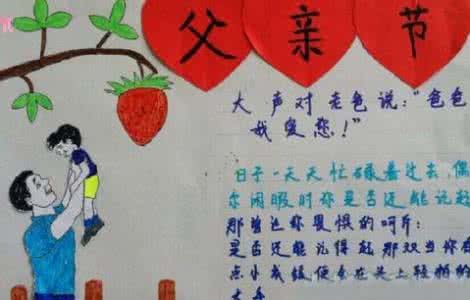 父亲节
大声对老爸说:“爸爸
我爱您!”
日子一天天忙碌着过去,偶
尔闲暇时你是否还能记起
那曾让你畏惧的呵斥;
是否还能记得起那双当你有
点小成绩便会在头上轻拍的
大手